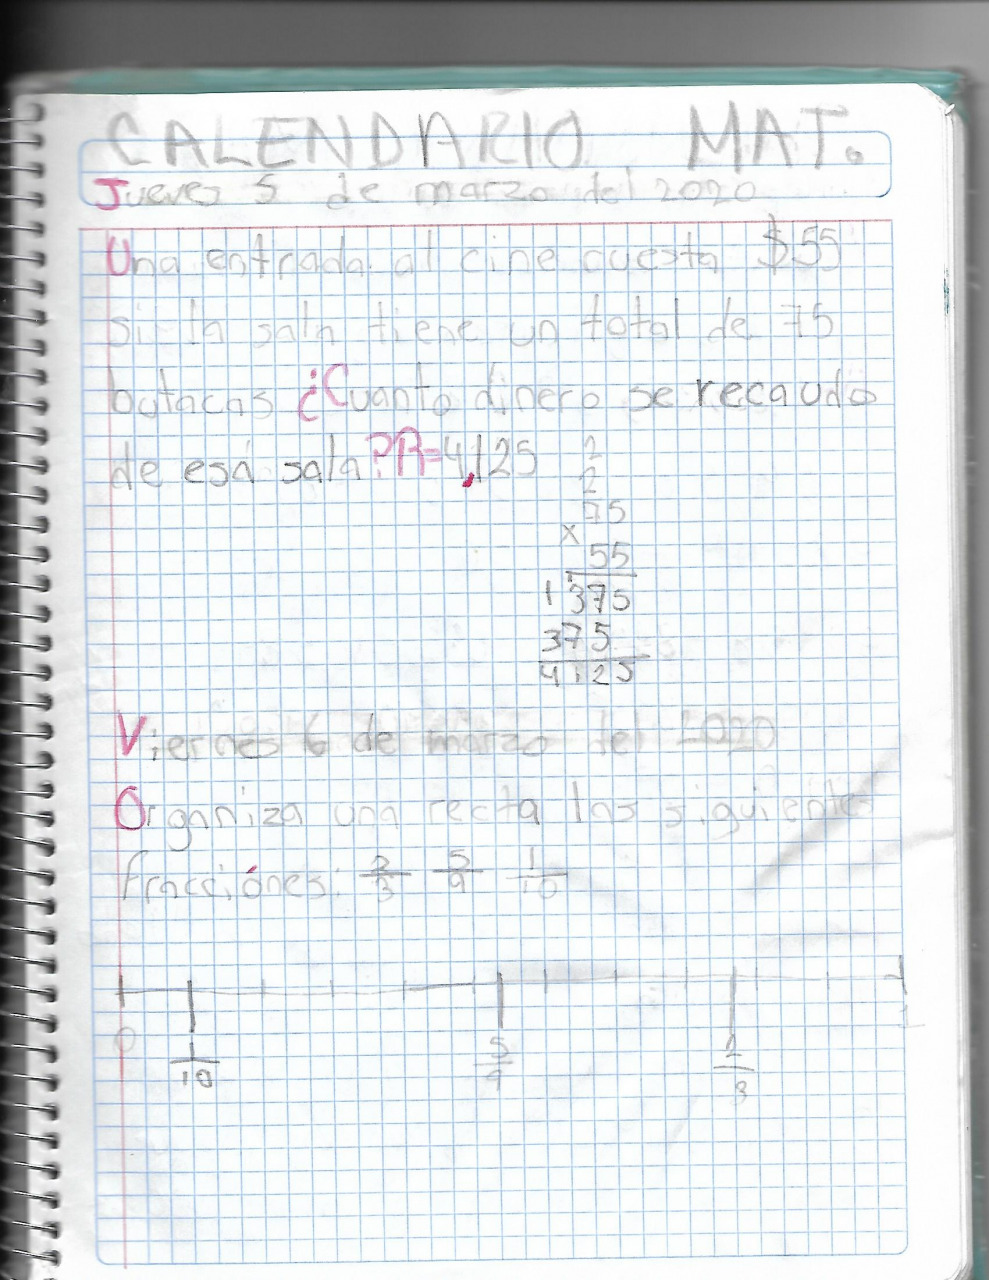 CALENDARIO MAT.
Jueves 5 de marzo del 2020
Una entrada al cine cuesta $55
si la sala tiene un total de 75
butacas ¿Cuanto dinero se recaudo
de esa sala? R=4,125
2
2
75
x
55
1 375
375
4125
Viernes 6 de marzo del 2020
Organiza una recta las siguientes
fracciónes: 2/3 5/9 1/10
0 1/10 5/9 2/3 1